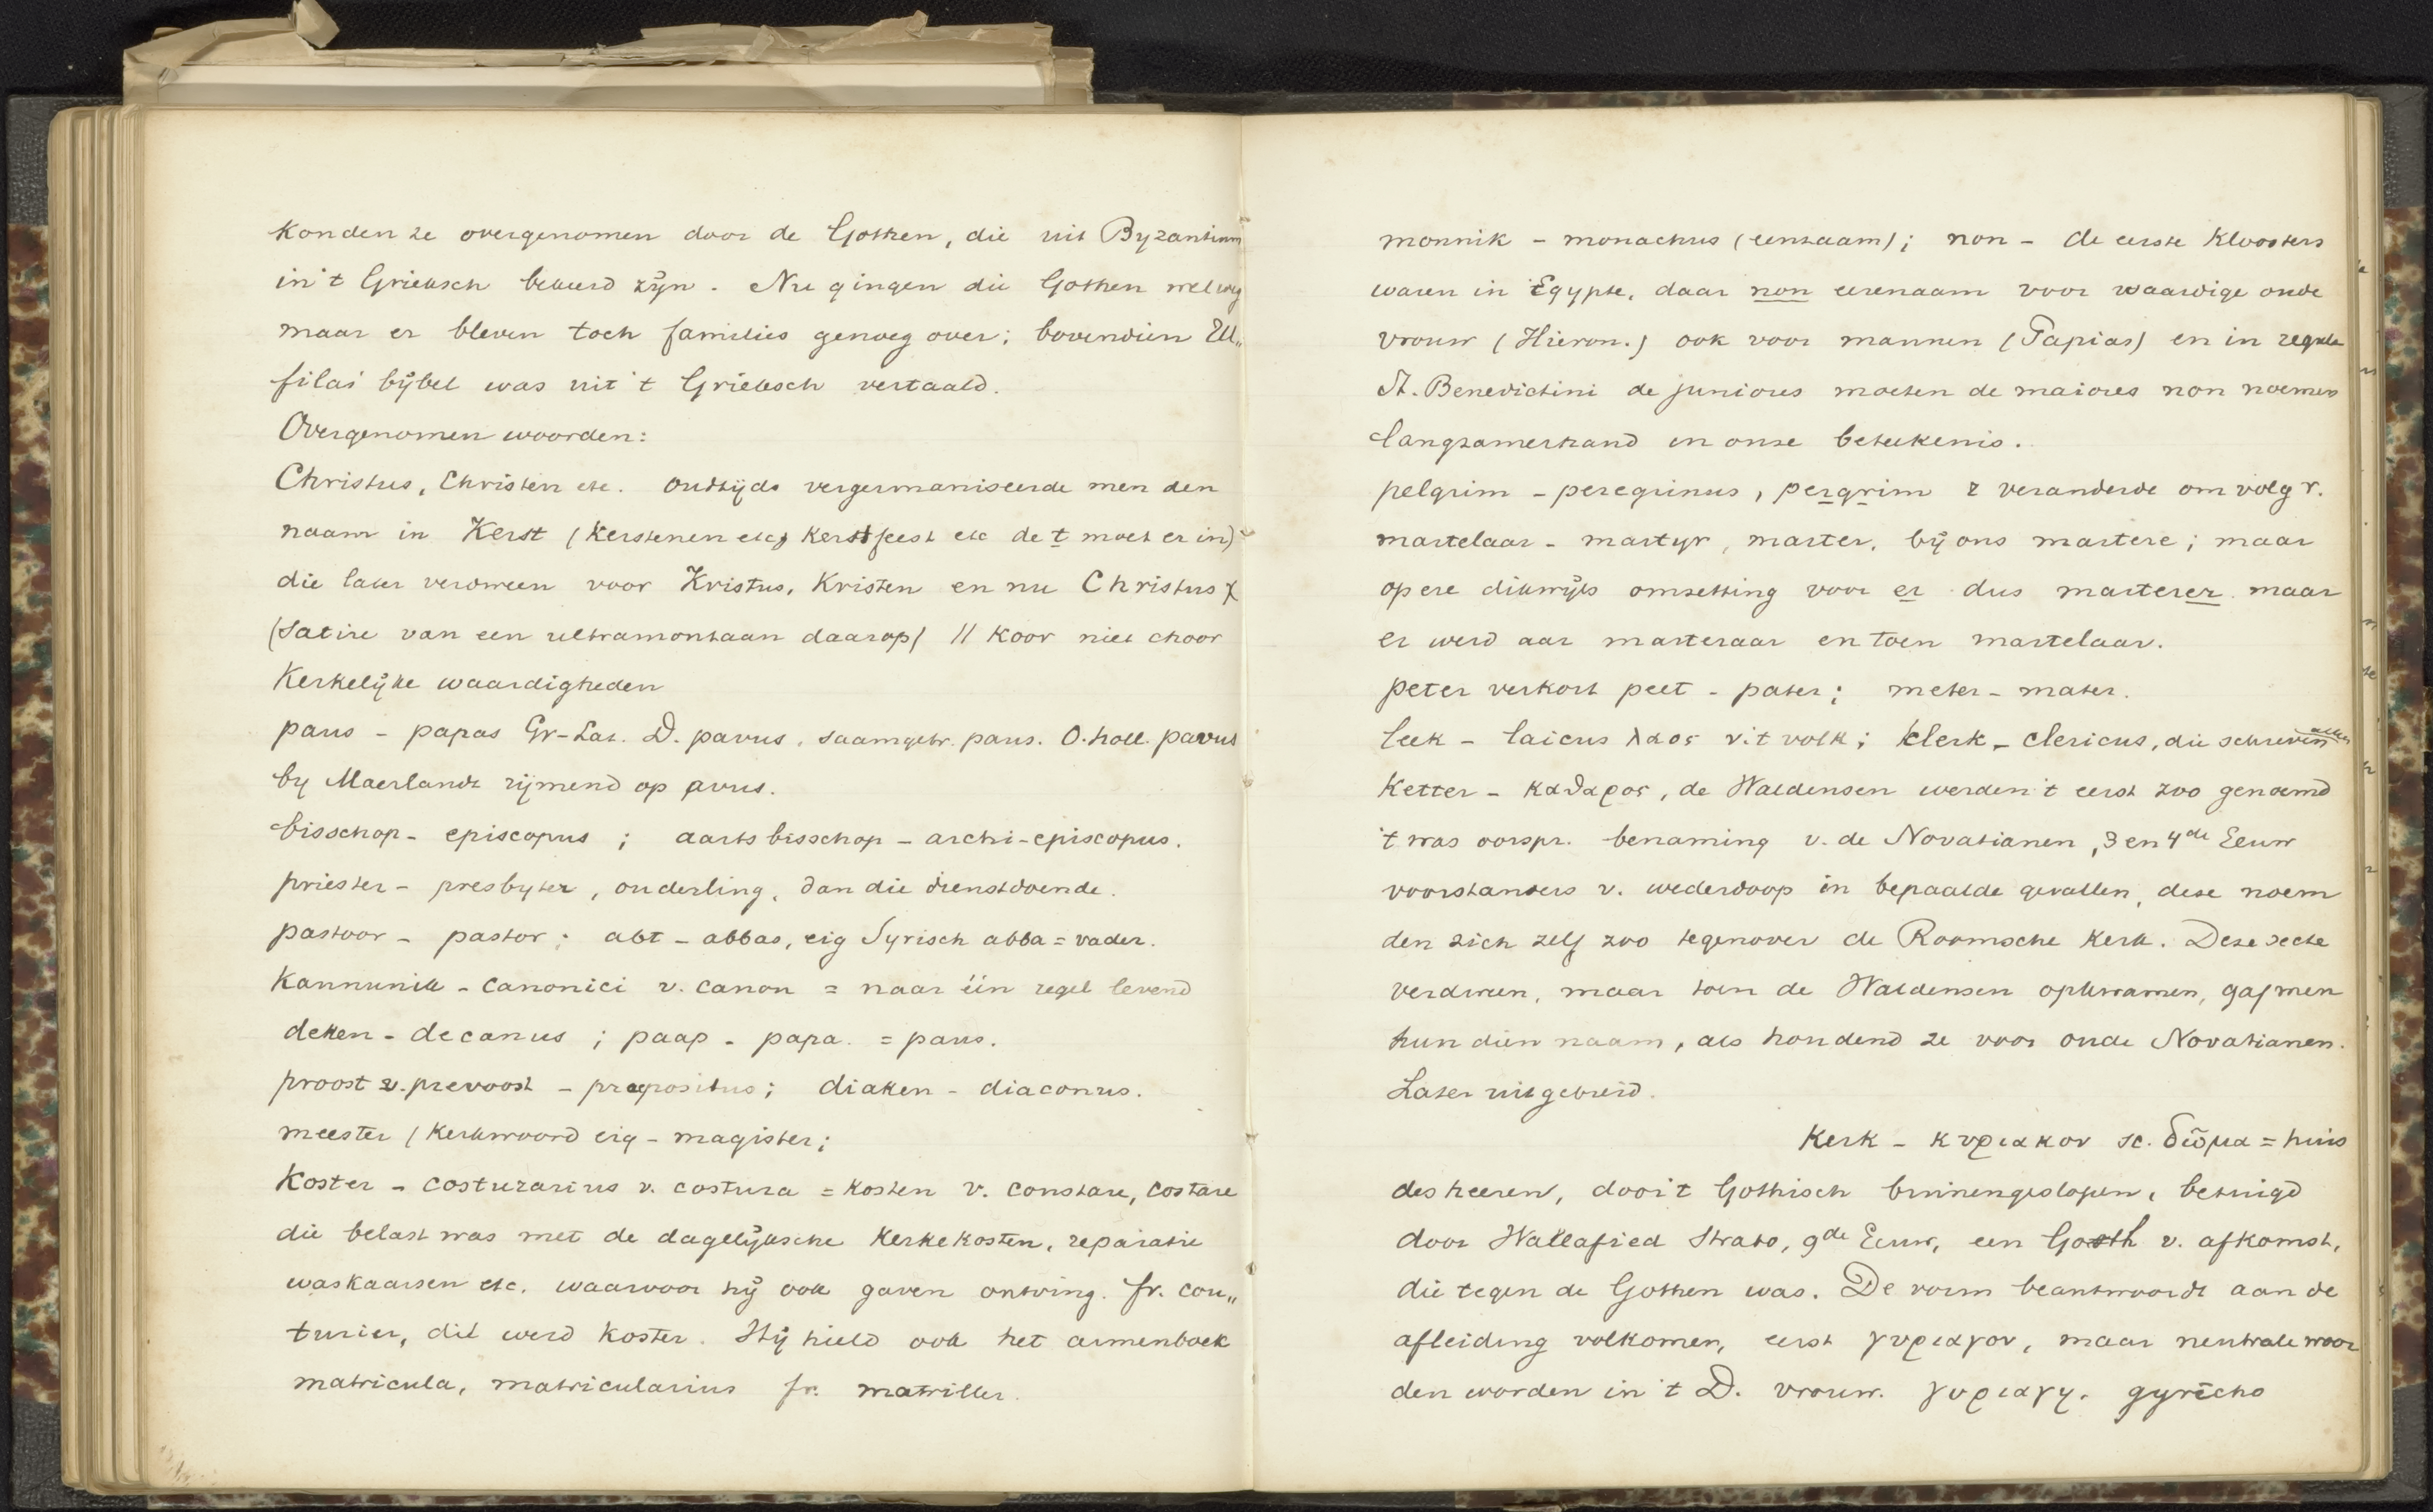 konden ze overgenomen door de Gothen, die uit Byzantium
in 't Grieksch bekeerd zijn. Nu gingen die Gothen wel weg
maar er bleven toch families genoeg over; bovendien Ul„
filas' bijbel was uit 't Grieksch vertaald.
Overgenomen woorden:
Christus, Christen etc. oudtijds vergermaniseerde men den
naam in Kerst (Kerstenen etc, Kerstfeest etc de t moet er in)
die later verdween voor Kristus, Kristen en nu Christus X
(Satire van een ultramontaan daarop) // Koor niet choor
Kerkelijke waardigheden
paus - papas Gr-Lat. D. pavus, saamgetr. paus. O.holl. pavus
by Maerlandt rijmend op avus.
bisschop - episcopus; aartsbisschop - archi-episcopus.
priester - presbyter, ouderling, dan die dienstdoende.
pastoor - pastor; abt - abbas, eig Syrisch abba = vader.
Kannunik - canonici v. canon = naar één regel levend
deken - decanus; paap - papa. = paus.
proost v. prevoost - praepositus; diaken - diaconus.
meester (Kerkwoord eig - magister;
Koster - costurarius v. costura = kosten v. constare, costare
die belast was met de dagelijksche Kerkekosten, reparatie
waskaarsen etc. waarvoor hij ook gaven ontving. fr. cou„
turier, dit werd koster. Hij hield ook het armenboek
matricula, matricularius fr. matriller.
monnik - monachus (eenzaam); non - de eerste Kloosters
waren in Egypte, daar non eerenaam voor waardige oude
vrouw (Hieron.) ook voor mannen (Papias) en in regula
St. Benedictini de juniores moeten de maiores non noemen
langzamerhand in onze beteekenis.
pelgrim - peregrinus, pergrim r veranderde om volg r.
martelaar - martyr, marter, bij ons martere; maar
op ere dikwijls omzetting voor er dus marterer maar
er werd aar marteraar en toen martelaar.
peter verkort peet - pater; meter - mater.
leek - laicus λαος v. 't volk; klerk - clericus, die schreven
Ketter - καθαρος, de Waldensen werden 't eerst zoo genoemd
't was oorspr. benaming v. de Novatianen, 3 en 4de Eeuw
voorstanders v. wederdoop in bepaalde gevallen, deze noem
den zich zelf zoo tegenover de Roomsche Kerk. Deze secte
verdween, maar toen de Waldensen opkwamen, gaf men
hun dien naam, als houdend ze voor oude Novatianen.
Later uitgebreid.
Kerk - κυριακον sc. δῶμα = huis
des heeren, door 't Gothisch binnengeslopen, betuigd
door Wallafied Strabo, 9de Eeuw, een Goth v. afkomst,
die tegen de Gothen was. De vorm beantwoordt aan de
afleiding volkomen, eerst γυριαγον, maar neutrale woor
den worden in 't D. vrouw. γυριαγη. gyrēcho